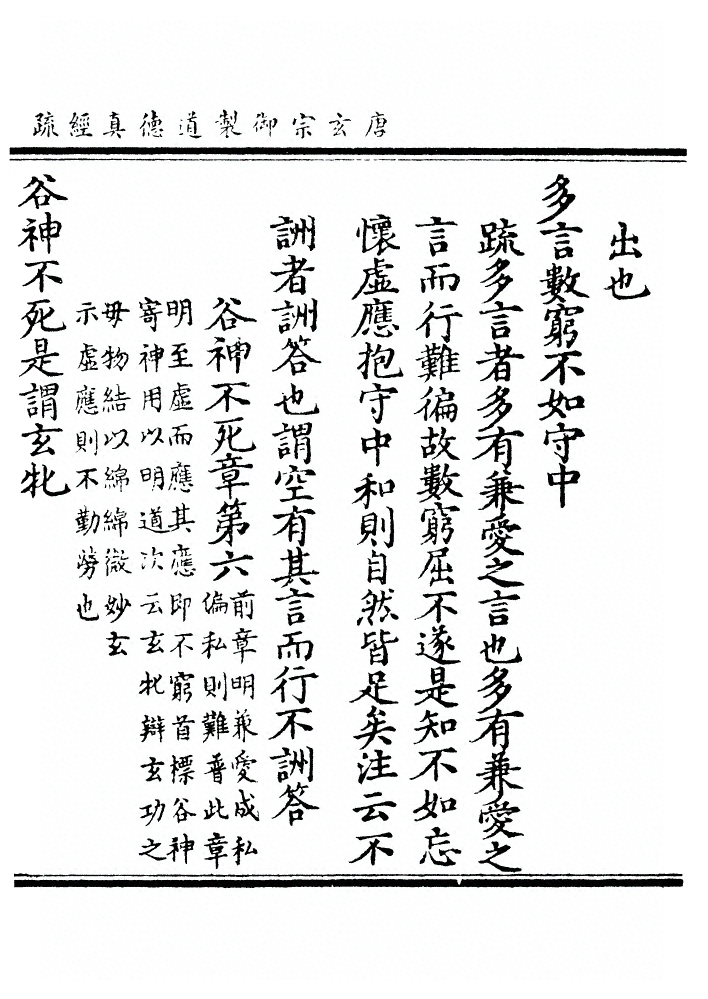 唐玄宗御製道德真經疏
出也
多言數窮不如守中
疏多言者多有兼愛之言也多有兼愛之
言而行難徧故數窮屈不遂是知不如忘
懷虛應抱守中和則自然皆足矣注云不
詶者詶答也謂空有其言而行不詶答
谷神不死章第六
前章明兼愛成私
偏私則難普此章
明至虛而應其應即不窮首標谷神
寄神用以明道次云玄牝辯玄功之
毋物結以綿綿微妙玄
示虛應則不勤勞也
谷神不死是謂玄牝